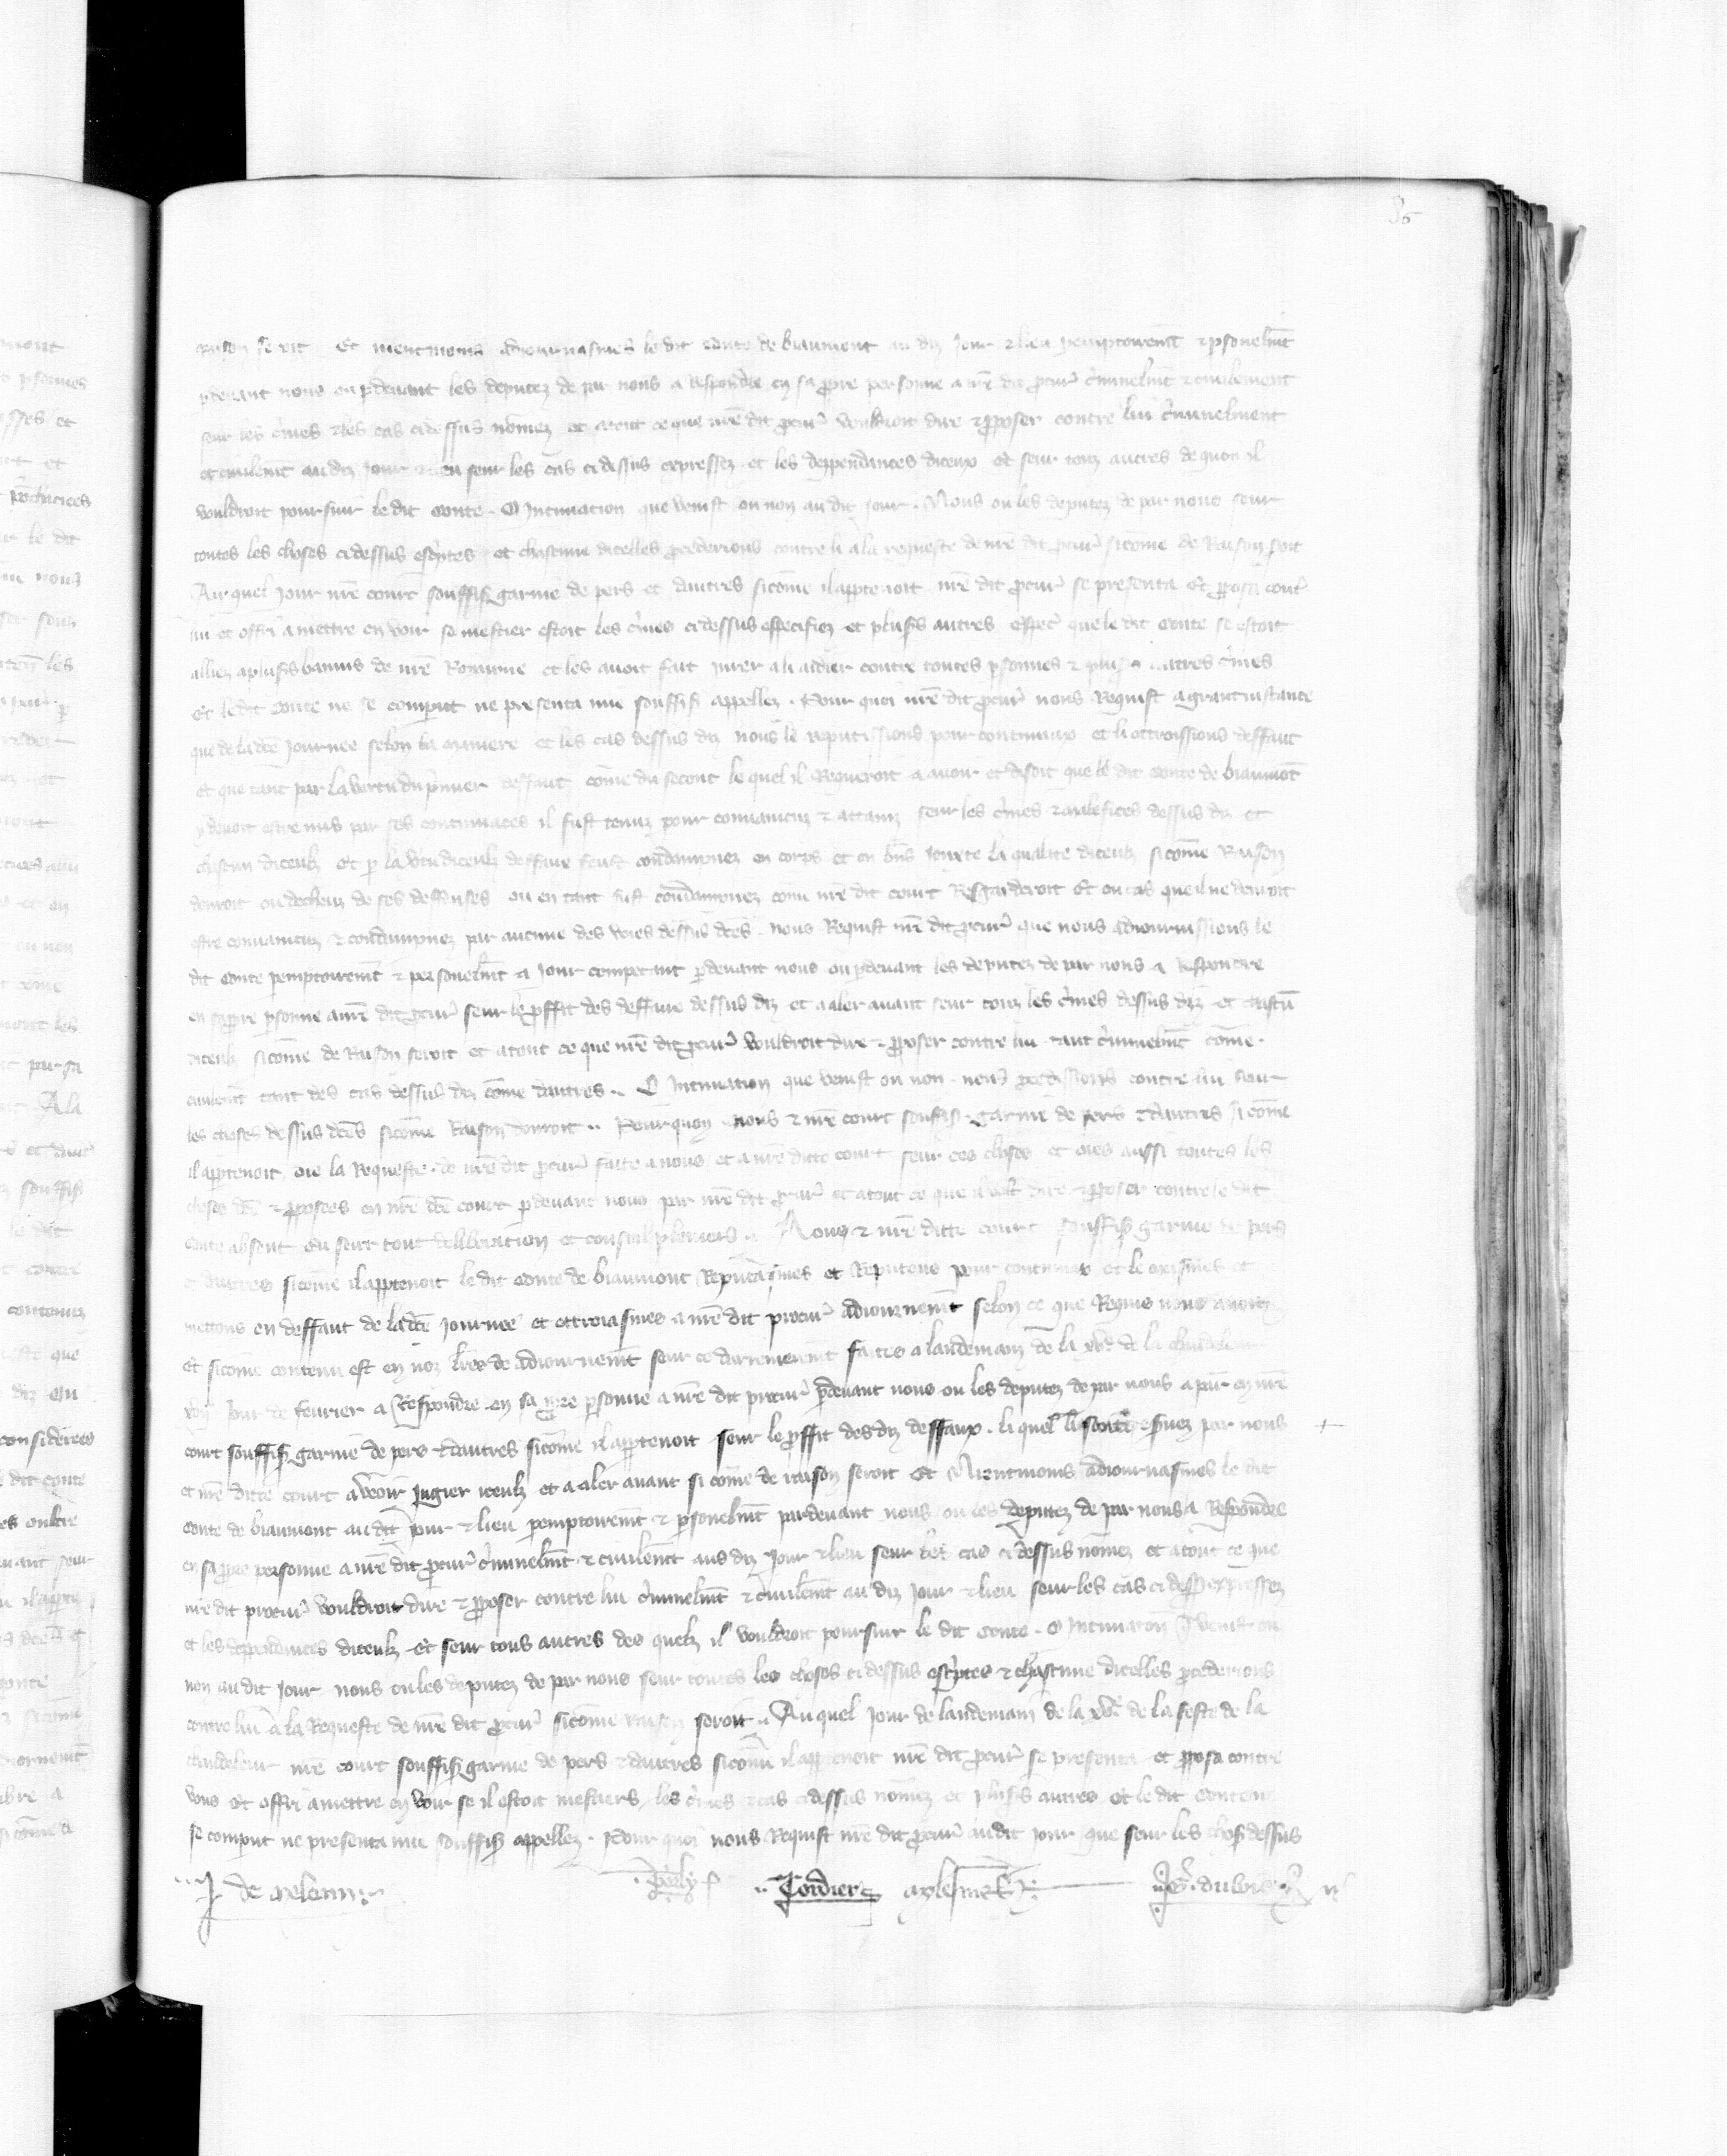 86
raison seroit Et nientmoins adiournasmes le dit conte de biaumont au diz Jour et lieu pemptoiremt et psonelmt
pdeuant nous ou pdeuant les deputez de par nous a Respondre en sa ppre personne a nre dit pcur criminelmt et ciuilement
seur les crimes et les cas cidessus nomez et a tout ce que nre dit pcur vouldroit dire et pposer contre lui criminelment
et ciuilemt audiz Jour et lieu seur les cas ci dessus expressez et les deppendances diceux Et seur touz autres de quoi il
vouldroit poursuir le dit conte . O Intimation que venist ou non au dit Jour . Nous ou les deputez de par nous seur
toutes les choses cidessus escriptes et chascune dicelles pcederions contre li a la requeste de nre dit pcur sicome de Raison soit
Au quel Jour nre court souffis garnie de pers et dautres sicome il appartenoit nre dit pcur se presenta Et pposa contre
lui et offri a mettre en voir se mestier estoit les crimes cidessus especifiez et plusrs autres especial que le dit Conte se estoit
alliez a plusrs banniz de nre Roiaume et les auoit fait iurer a li aidier contre toutes psonnes et plusrs autres crimes
Et le dit Conte ne se comparut ne presenta mie souffis appellez . Pour quoi nre dit pcur nous Requist a grant instance
que de la dce Journee selon la maniere et les cas dessus diz nous le reputissions pour contumax et li ottroissions deffaut
et que tant par la vertu du pmier deffaut come du secont le quel il Requeroit a auoir et disoit que le dit Conte de biaumont
y deuoit estre mis par ses contumaces il fust tenuz pour conuaincuz et attainz seur les crimes et malefices dessus diz et
chascun diceulz Et p la vtu diceulz deffaux feust condampnez en corps et en biens Jouxte la qualite diceulz sicome Raison
donroit ou decheuz de ses deffenses ou en tant fust condampnez come nre dit court Resgarderoit Et ou cas que il ne deuroit
estre conuaincuz et condampnez par aucune des voies dessus dces . nous Requist nre dit pcur que nous adiournissions le
dit Conte pemptoiremt et personelmt a Jour competant pdeuant nous ou pdeuant les deputez de par nous a respondre
en sa ppre psonne a nre dit pcur seur le pffit des deffaux dessus diz et a aler auant seur touz les crimes dessus diz et chascun
diceulz sicome de Raison seroit et a tout ce que nre dit pcur vouldroit dire et pposer contre lui tant criminelmt come .
ciuilemt tant des cas dessus diz come dautres .. O Intimation que venist ou non . nous pcedissions contre lui seur
les choses dessus dces sicome Raison donroit .. Pour quoy nous et nre court souffis . garnie de pers et dautres si come
il appartenoit oie la Requeste de nre dit pcur faite a nous et a nre ditte court seur ces choses et oies aussi toutes les
choses dces et pposees en nre dce court pdeuant nous par nre dit pcur et a tout ce que il volt dire et pposer contre le dit
conte absent eu seur tout deliberation et conseil pleniers .. Nous et nre ditte court souffis garnie de pers
et dautres sicome il apptenoit le dit Conte de biaumont Reputasmes et Reputons pour contumax et le meismes et
mettons en deffaut de la dce Journee et ottroiasmes a nre dit procur adiournemt selon ce que Requis nous auoit
Et sicome contenu est en noz lres de adiournemt seur ce darrenierement faites a landemain de la xve de la chandeleur
xvije Jour de feurier a Respondre en sa ppre psonne a nre dit procur pdeuant nous ou les deputez de par nous a par en nre
court souffis garnie de pers et dautres sicome il appartenoit seur le pffit des diz deffaux . li quel li soient reseruez par nous
et nre ditte court a veoir Jugier iceulz et a aler auant si come de raison seroit Et Nientmoins adiournasmes le dit
Conte de biaumont au dit Jour et lieu pemptoiremt et psonelmt pardeuant nous ou les deputez de par nous a Respondre
en sa ppre personne a nre dit pcur criminelmt et ciuilemt aus diz Jour et lieu seur les cas ci dessus nomez et a tout ce que
nre dit procur vouldroit dire et pposer contre lui criminelmt et ciuilemt au diz Jour et lieu seur les cas ci dess expressez
et les dependances diceulz Et seur tous autres des quelz il vouldroit poursuir le dit Conte . O Intimaton q venist ou
non au dit Jour nous ou les deputez de par nous seur toutes les choses cidessus escriptes et chascune dicelles pcederions
contre lui a la Requeste de nre dit pcur sicome raison seroit .. Au quel Jour de landemain de la xve de la feste de la
chandeleur nre court souffis garnie de pers et dautres sicome il appartenoit nre dit pcur se presenta et pposa contre
vous Et offri a mettre en voir se il estoit mestiers les crimes et cas cidessus nomez et plusrs autres Et le dit Conte ne
se comparut ne presenta mie souffis appellez . Pour quoi nous Requist nre dit pcur audit Jour que seur les choses dessus
.. J de meleun .. Cordier